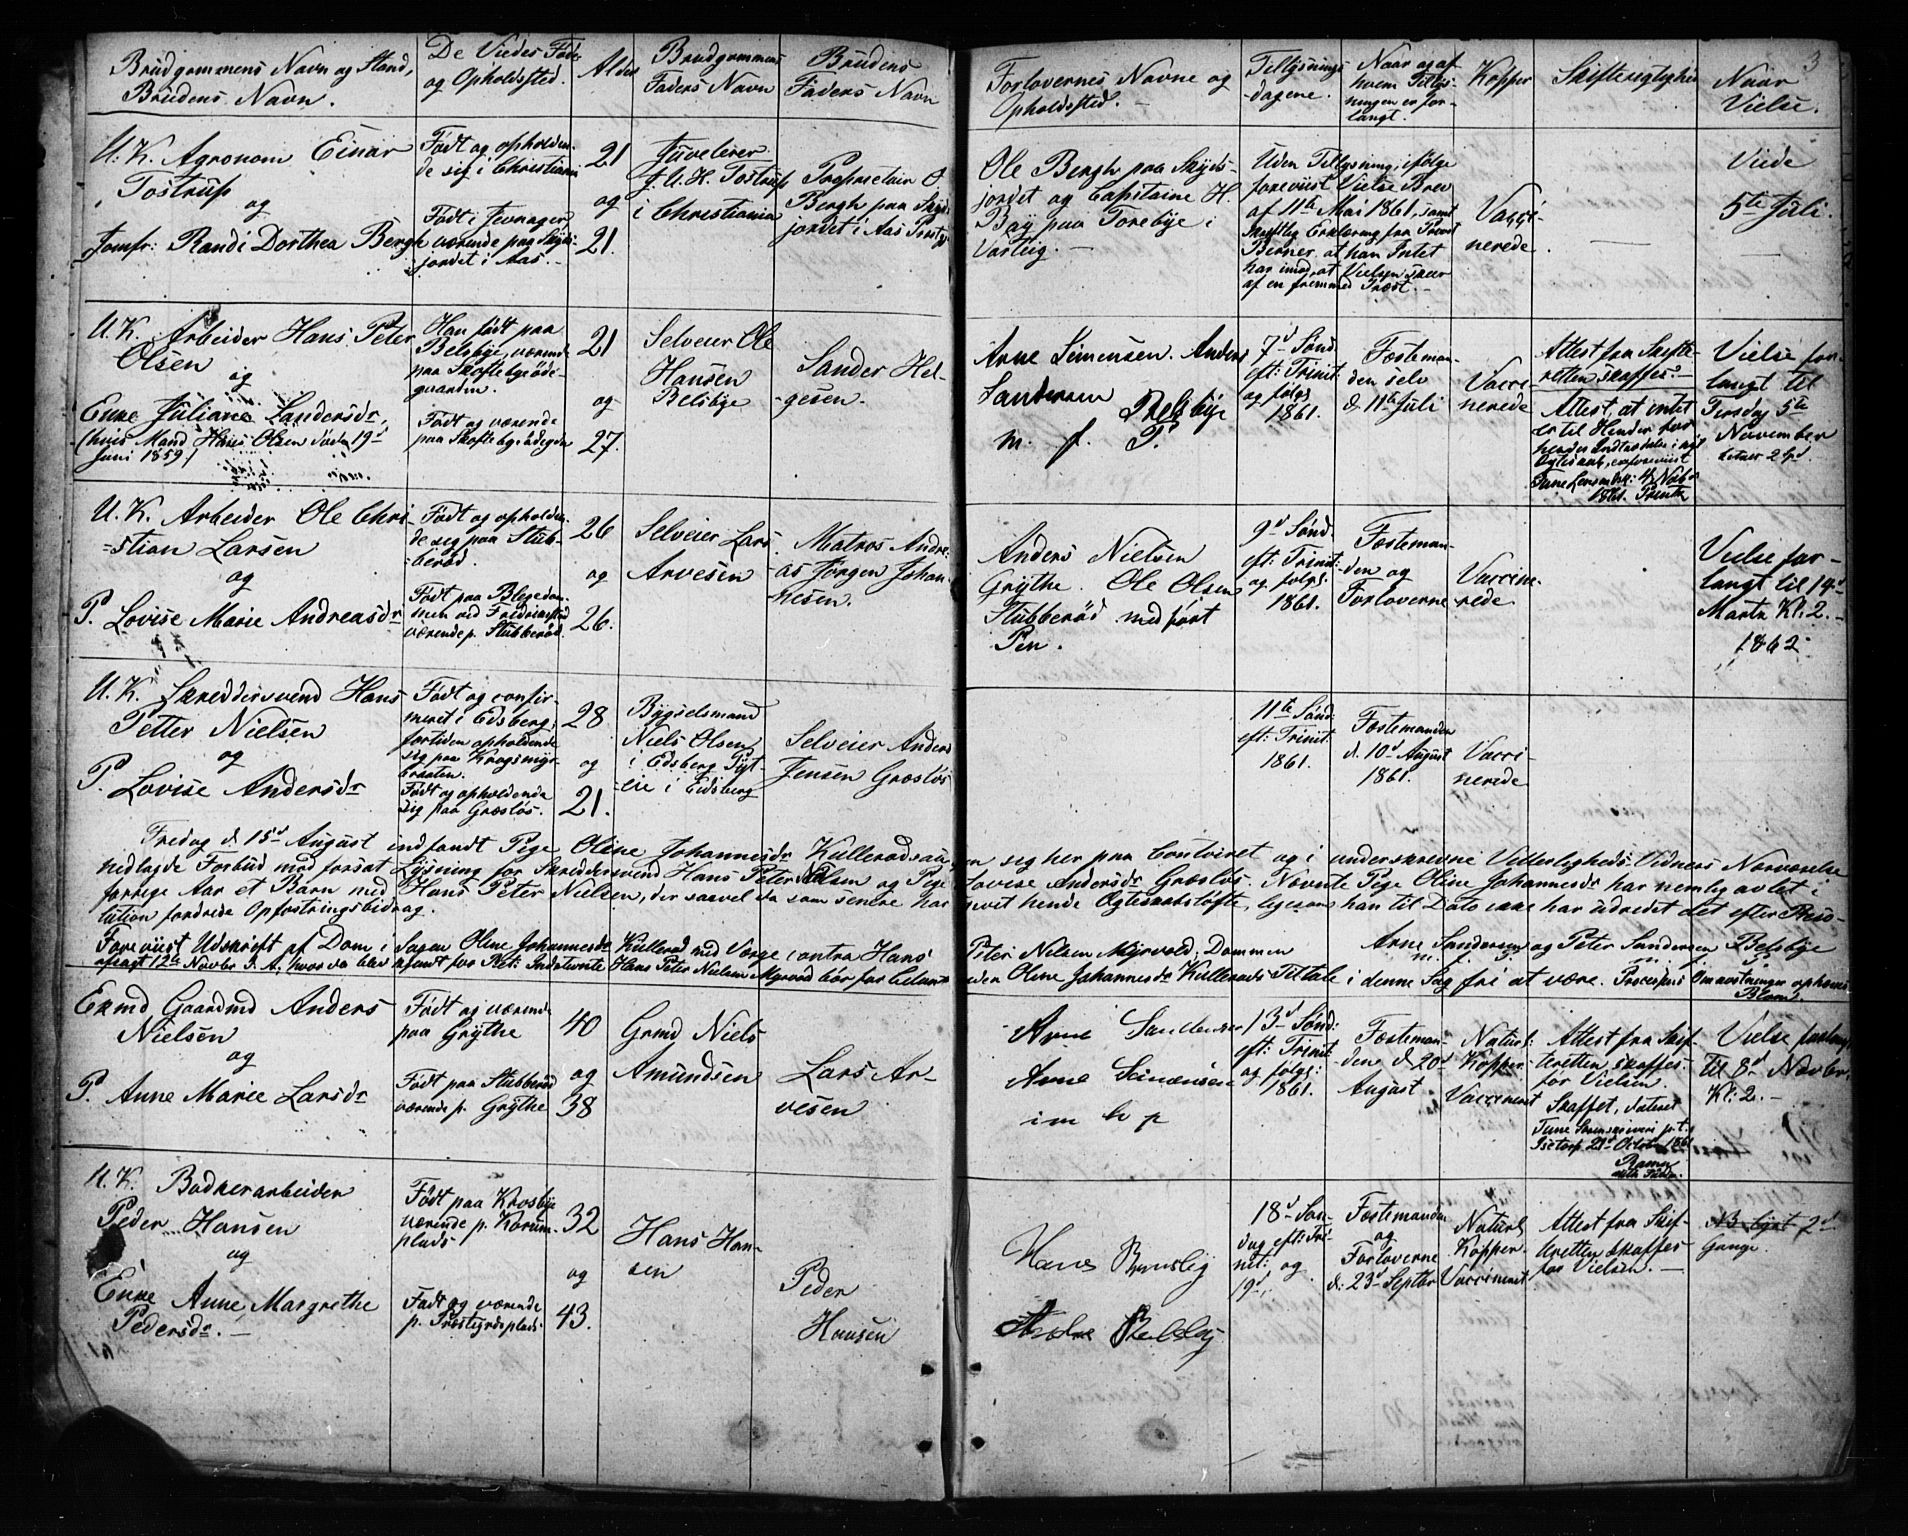 Brudgommens Navn og Stand,
Brudens Navn.
De Viedes Føde
og Opholdssted.
Alder
Brudgommens
Faders Navn
Brudens
Faders Navn
Forlovernes Navne og
Opholdssted.
Tillysnings
-dagene.
Naar og af
hvem Tillys-
ningen er for-
langt.
Kopper
Skifterigtighed
Naar
Vielse.
3
U. K. Agronom Einar
Tostrup
og
Jomfr: Randi Dorthea Bergh
Født og opholden-
de sig i Christiania
Født i Jevnager
værende paa Skjds-
jordet i Aas.
21
og
21.
Juveleer
J. U. H. Tostrup
i Christiania
Proprietair O.
Bergh paa Skjds-
jordet i Aas Præstgj
Ole Bergh paa Skjds-
jordet og Capitaine H.
Bay paa Torebye i
Varteig.
Uden Tillysning, ifølge
foreviist Vielse Brev
af 11te Mai 1861, samt
skriftlig Erklæring fra Provst
Berner, at han Intet
har imod, at Vielsen skeer
af en fremmed Præst.
Vacci-
nerede.
Viede
5te Juli.
U. K. Arbeider Hans Peter
Olsen
og
Enke Juliane Sandersdr,
(hvis Mand Hans Olsen døde 19d
Juni 1859)
Han født paa
Belsbye, værende
paa Skoftebyrøde-
gaarden.
Født og værende
paa Skoftebyrødegrd
21
og
27.
Selveier Ole
Hansen
Belsbye
Sander Hel-
gesen.
Arne Simensen. Anders
Sandersen Belsbye
m. f. P.
7d Sønd.
eft: Trinit:
og følg:
1861.
Fæsteman-
den selv
d. 11te Juli
Vacci-
nerede
Attest fra Skifte-
retten skaffes.
Attest, at intet
er til Hinder for
hendes Indtrædelse i nyt
Ægteskab, er foreviist
Tune Lensmsk: 4/ Novb
1861.
Vielse for-
langt til
Tirsdag 5te
November
U. K. Arbeider Ole Chri-
=stian Larsen
og
P. Lovise Marie Andreasdr
Født og opholden-
de sig paa Stub-
berød.
Født paa Blegedam-
men ved Fredrikssted
værende p. Stubberød.
26
og
26.
Selveier Lars
Arvesen
Matros Andre-
as Jørgen Johan-
nesen.
Anders Nielsen
Grythe. Ole Olsen
Stubberød med ført
Pen.
9d Sønd
eft: Trinit:
og følg:
1861.
Fæsteman-
den og
Forloverne
Vaccine-
rede.
Vielse for-
langt til 14d
Marts Kl: 2.
1862
U. K. Skreddersvend Hans
Petter Nielsen
og
P. Lovise Andersdr
Født og confir-
meret i Edsberg;
fortiden opholdende
sig paa Krogsmyr-
braaten.
Født og opholdende
sig paa Græsløs.
28
og
21.
Bygselsmand
Niels Olsen
i Edsberg
i Eidsberg
Selveier Anders
Jensen Græsløs
11te Sønd:
eft: Trinit:
1861.
Fæstemanden
d. 10d August
1861.
Vacci-
nerede
Fredag d. 15d August indfandt Pige Oline Johannesdr Kullerødsau- en sig her paa Contoiret og i underskrevne Vitterligheds Vidners Nærværelse
nedlagde Forbud mod forsat Lysning for Skreddersvend Hans Peter Nielsen og Pige Lovise Andersdr Græsløs. Nævnte Pige Oline Johannesdr har nemlig avlet i
forrige Aar et Barn med Hans Peter Nielsen, der saavel da som senere har givet hende Ægteskabsløfte, ligesom han til Dato ikke har udredet det efter Reso-
lution fordrede Opfostringsbidrag.
Arne Sandersen og Peter Sandersen Belsbye
m. f. P. m. f. P.
Foreviist Udskrift af Dom i Sagen Oline Johannesdr Kullerød med Værge contra Hans Peter Nielsen Myrvold; Dommen
afsagt 12te Novbr d. A., hvorved blev kjendt for Ret: Indstevnte Hans Peter Nielsen Myrvold bør for Citant- inden Oline Johannesdr Kullerøds Tiltale i denne Sag fri at være. Processens Omkostninger ophæves.
Enkmd Gaardmd Anders
Nielsen
og
P. Anne Marie Larsdr
Født og værende
paa Grythe
Født paa Stubberød
værende p. Grythe
40
og
38
Grmd Niels
Amundsen
Lars Ar-
vesen
Arne Sandersen
Arne Simensen
m h p
13d Sønd:
eft: Trinit:
og følg:
1861.
Fæsteman-
den d. 20d
August
Naturl:
Kopper.
Vaccineret
Attest fra Skif-
teretten skaffes
før Vielsen.
Skaffet, dateret
Tune Sorenskriveri p. t.
Isetorp 21d Octob 1861
Vielse forlangt
til 8d Novbr.
Kl: 2.
U. K. Bødkerarbeider
Peder Hansen
og
Enke Anne Margrethe
Pedersdr.
Født paa Krosbye
værende p. Korum-
plads
Født og værende
p. Prestgrdsplads
32
og
43.
Hans Han-
sen
Peder
Hansen
Hans
18d Søn-
dag eft: Tri-
nit: og
19d.
Fæstemanden
og
Forloverne
d. 23d Septbr
Naturl:
Kopper.
Vaccineret
Attest fra Skif-
teretten skaffes
før Vielsen.
NB. lyst 2d
Gange.